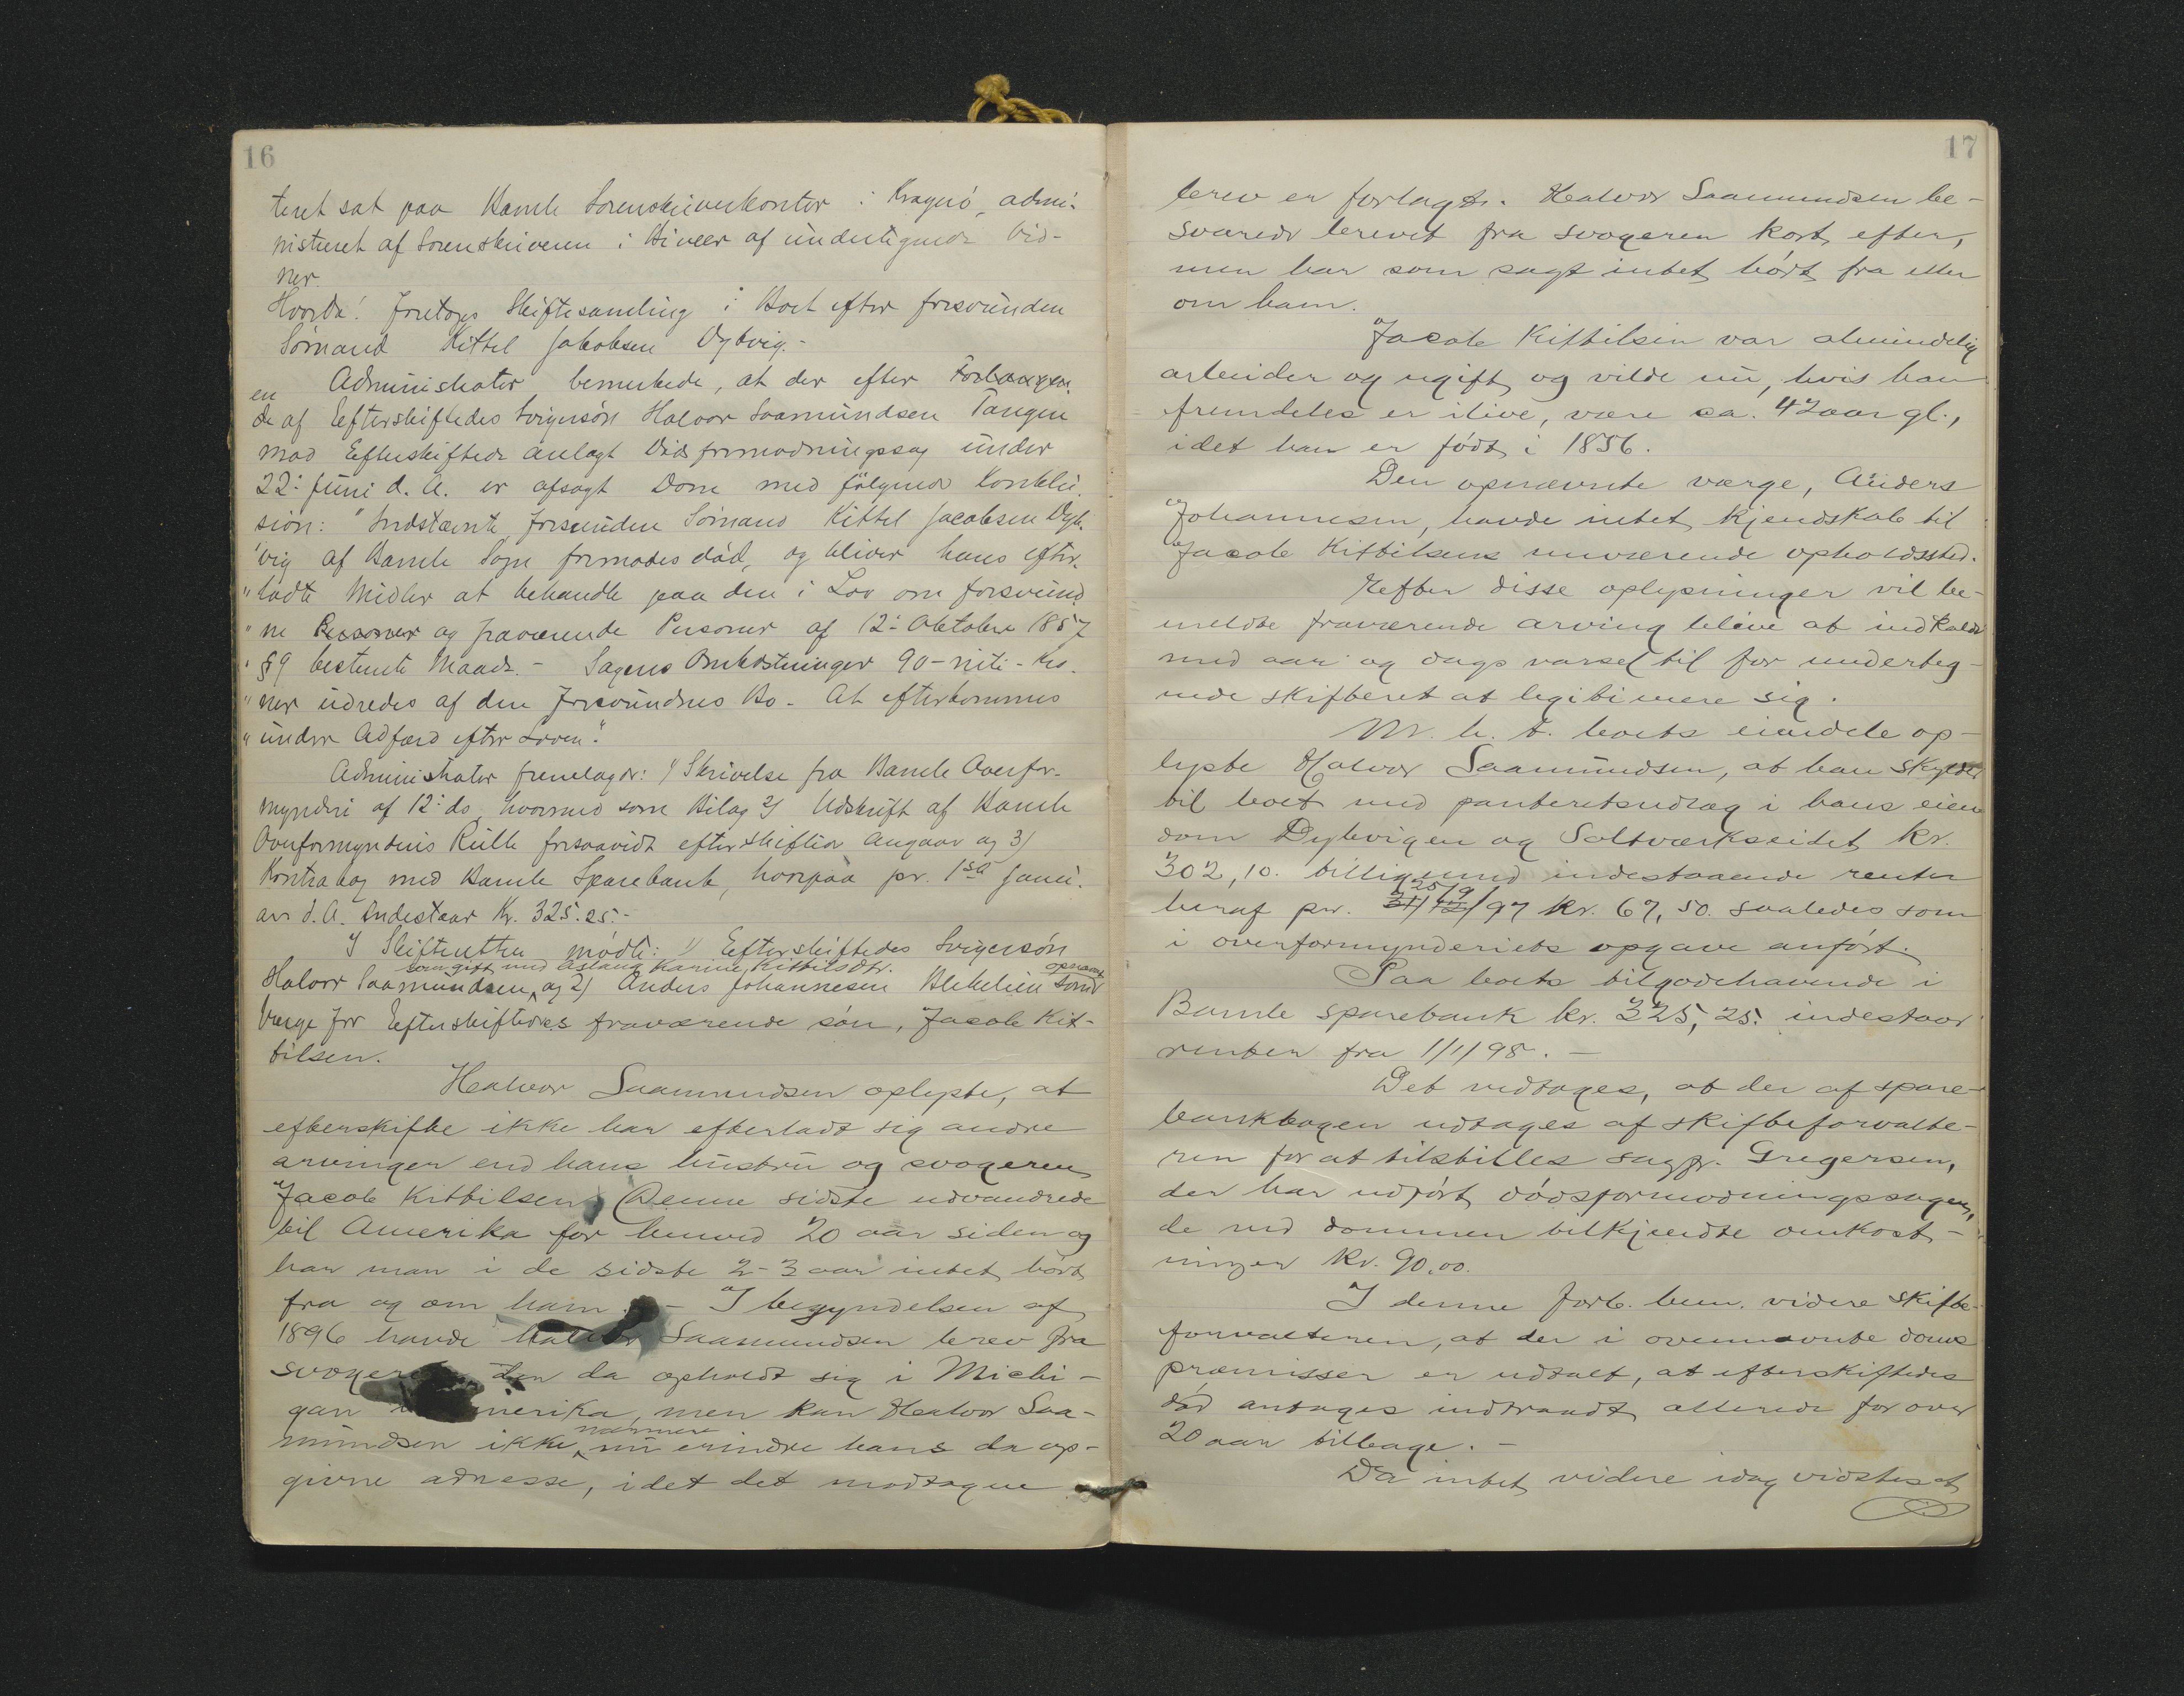 16
teret sat paa Bamle Sorenskriverkontor i Kragerö, admi-
nistreret af Sorenskriveren i Overvær af undertegnede Vid-
ner.
Hvorda! Foretoges Skiftesamling i Boet efter forsvunden
Sömand Kittel Jakobsen Dybvig.-
Administrator bemerkede, at der efter Forlangen-
en
de af Efterskiftedes Svigersön Halvor Saamundsen Tangen
mod Efterskiftede anlagt Dödsformodningssag under
22: Juni d. A. er afsagt Dom med fölgende Konklu-
sion: "Indstævnte, forsvunden Sömand Kittel Jacobsen Dyb-
"vig af Bamle Sogn formodes död, og bliver hans efter-
"ladte Midler at behandle paa den i Lov om forsvund-
"ne Personer og fraværende Personer af 12: Oktober 1857
"§9 bestemte Maade. - Sagens Omkostninger 90-niti-Kro-
"ner udredes af den forsvundnes Bo. - At efterkommes
"under Adfærd efter Loven."
Administrator fremlagde: 1) Skrivelse fra Bamle Overfor-
mynderi af 12: ds, hvormed som Bilag 2) Udskrift af Bamle
Overformynderis Rulle forsaavidt efterskiftede angaar og 3)
Kontrabog med Bamle Sparebank, hvorpaa pr. 1ste Janu-
ar d. A. indestaar Kr. 325.25.-
I Skifteretten mödte: 1) Efterskiftedes Svigersön
som gift med Aslaug Karine Kittilsdtr. opnævnt
Halvor Saamundsen, og 2) Anders Johannesen Blekelien som
Værge for Efterskiftedes fraværende sön, Jacob Kit-
tilsen.
Halvor Saamundsen oplyste, at
efterskifte ikke har efterladt sig andre
arvinger end hans hustru og svogeren
Jacob Kittilsen. Denne sidste udvandrede
til Amerika for henved 20 aar siden og
har man i de sidste 2-3 aar intet hört
fra og om ham. - I begyndelsen af
1896 havde Halvor Saamundsen brev fra
svogeren, der da opholdt sig i Michi-
gan i Amerika, men kan Halvor Saa-
nærmere
mundsen ikke nu erindre hans da op-
givne adresse, idet det modtagne
17
brev er forlagt. Halvor Saamundsen be-
svarede brevet fra svogeren kort efter,
men har som sagt intet hört fra eller
om ham.
Jacob Kittilsen var almindelig
arbeider og ugift og vilde nu, hvis han
fremdeles er ilive, være ca. 42 aar gl.,
idet han er födt i 1856.
Den opnævnte værge, Anders
Johannesen, havde intet kjendskab til
Jacob Kittilsens nuværende opholdssted.
Efter disse oplysninger vil be-
meldte fraværende arving blive at indkalde
med aar og dags varsel til for underteg-
nede skifteret at legitimere sig.
M. h. t. boets eiendele op-
lyste Halvor Saamundsen, at han skylder
til boet med panteretsudlæg i hans eien-
dom Dybvigen og Saltværkseidet kr.
302,10. tilligemed indestaaende renter
25 9
heraf pr. 31/12/97 kr. 67,50. saaledes som
i overformynderiets opgave anfört.
Paa boets tilgodehavende i
Bamle sparebank kr. 325,25. indestaar
renten fra 1/1/98. -
Det vedtoges, at der af spare-
bankbogen udtages af skifteforvalte-
ren for at tilstilles sagf. Gregersen,
der har udfört dödsformodningssagen,
de ved dommen tilkjendte omkost-
ninger kr. 90.00.
I denne forb. bem. videre skifte-
forvalteren, at der i ovennævnte doms
præmisser er udtalt, at efterskiftedes
död antages indtraadt allerede for over
20 aar tilbage. -
Da intet videre idag vidstes at